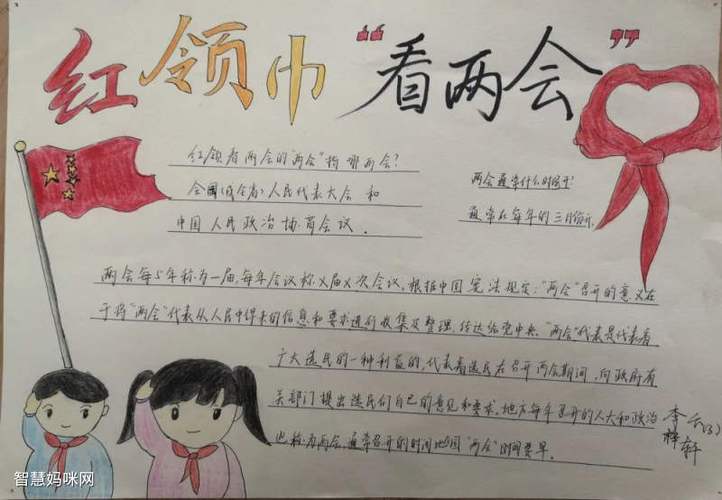 红领巾“看两会”
红领看两会的“两会”指哪两会？
全国（或全省）人民代表大会 和
中国人民政治协商会议．
两会通常什么时间开？
通常在每年的三月份开．
两会每5年称为一届，每年会议称X届X次会议，根据中国宪法规定：“两会”召开的意义在
于将“两会”代表从人民中得来的信息和要求进行收集及整理，传达给党中央．“两会”代表是代表着
广大选民的一种利益的，代表着选民在召开两会期间，向政府有
关部门提出选民们自己的意见和要求．地方每年召开的人大和政治
也称看两会，通常召开的时间比全国“两会”时间要早．
李梓轩
智慧妈咪网